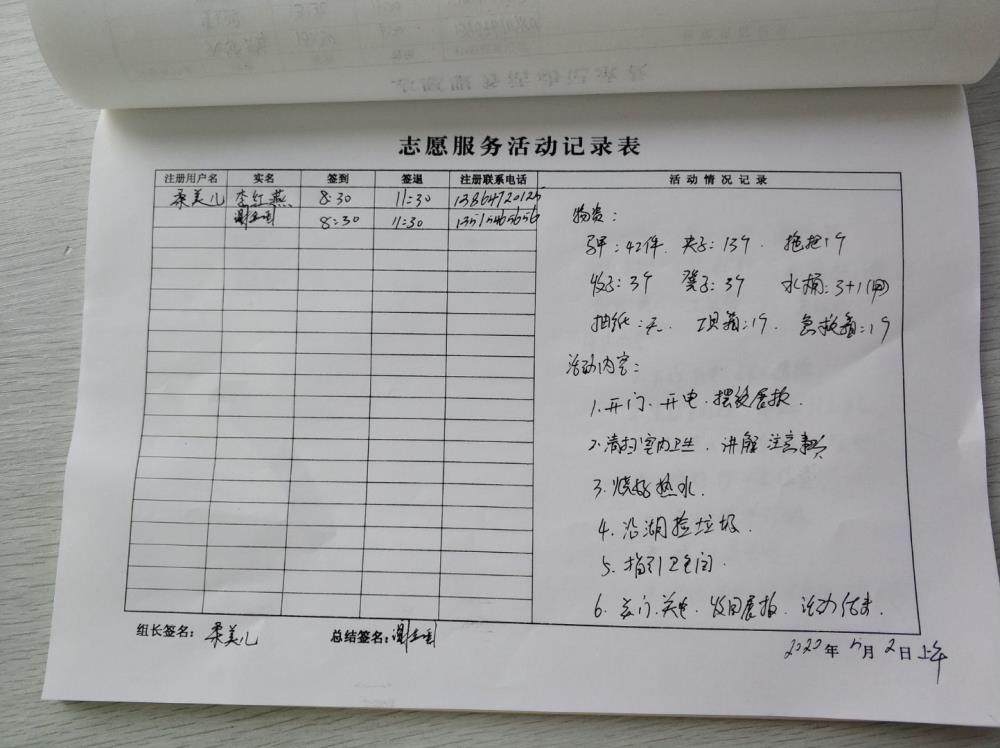 志愿服务活动记录表
注册用户名 实名 签到 签退 注册联系电话 活动情况记录
柔美儿 李红燕 8:30 11:30 13864720125
8:30 11:30 13515465656
物资:
马甲:42件. 夹子:13个. 拖把1个
凳子:3个 水桶:3+1(网)
抽纸:无. 工具箱:1个. 急救箱:1个
活动内容:
1.开门、开电.摆放展板.
2.清扫室内卫生.讲解注意事项
3.烧好热水.
4.沿湖捡垃圾.
5.指引卫生间.
6.关门.关电.收回展板.活动结束.
组长签名:柔美儿 总结签名:
2020年5月2日上午